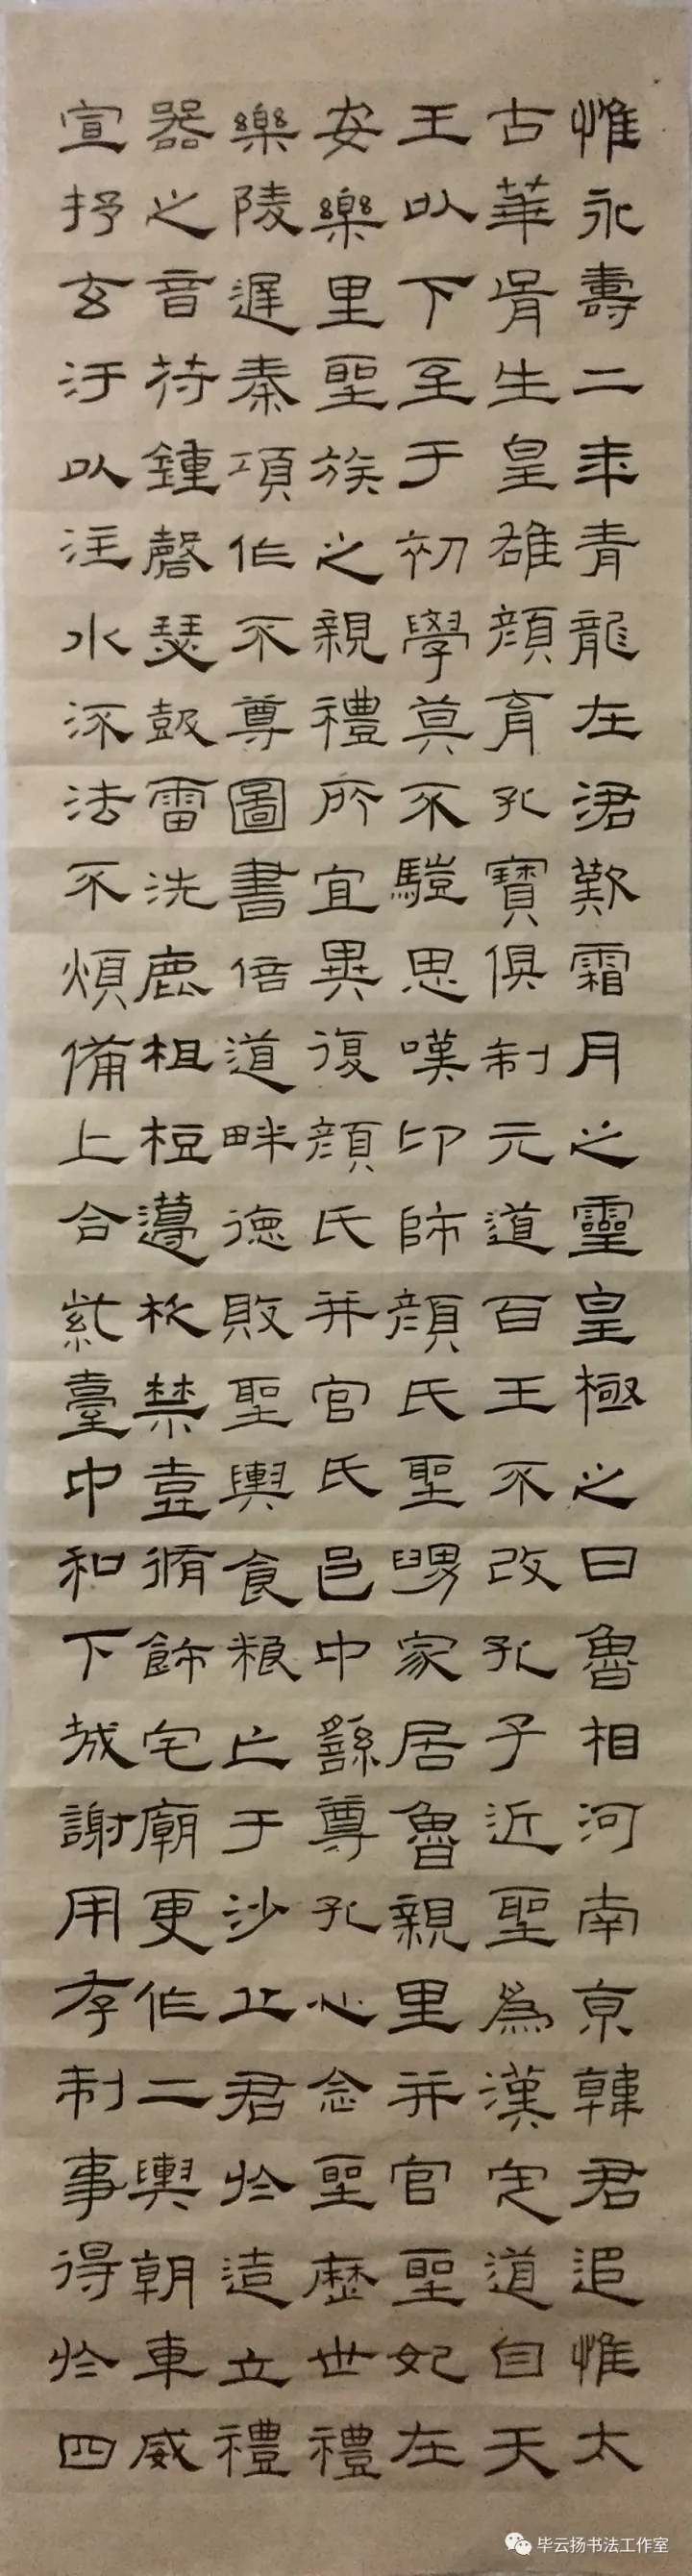 惟永壽二年青龍在涒歎霜月之靈皇極之日魯相河南京韓君追惟太
古華胥生皇雄顏育孔寶俱制元道百王不改孔子近聖為漢定道自天
王以下至于初學莫不𩥉思嘆卬師顏氏聖舅家居魯親里并官聖妃在
安樂里聖族之親禮所宜異復顏氏并官氏邑中繇尊孔心念聖歷世禮
樂陵遲秦項作不尊圖書倍道畔德敗聖輿食粮亡于沙丘君於造立禮
器之音苻鍾磬瑟鼓雷洗鹿柤梪籩柉禁壺脩飾宅廟更作二輿朝車威
宣抒玄汙以注水流法不煩備上合紫臺中和下城謝用存制事得於四
毕云扬书法工作室